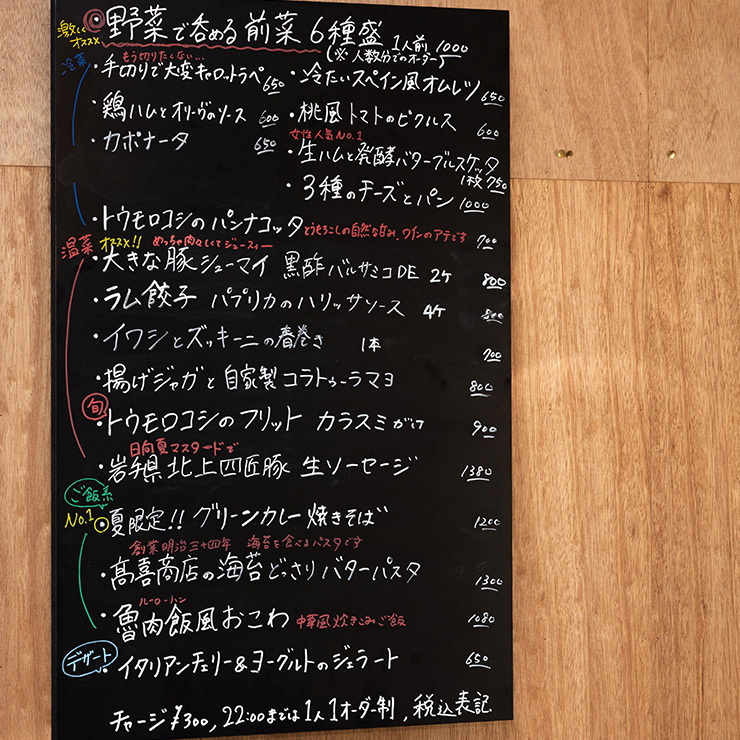 激しくオススメ
野菜で呑める前菜6種盛 1人前 1000
(※人数分でのオーダー)
冷菜
もう切りたくない…
・手切りで大変キャロットラペ 650
・冷たいスペイン風オムレツ 650
・鶏ハムとオリーヴのソース 600
・桃風トマトのピクルス 600
・カポナータ 650
女性人気No.1
・生ハムと発酵バターブルスケッタ
1枚 750
・3種のチーズとパン 1000
・トウモロコシのパンナコッタ とうもろこしの自然な甘み、ワインのアテです 700
温菜 オススメ!! めっちゃ肉々しくてジュースィー
・大きな豚シューマイ 黒酢バルサミコDE 2ケ 800
・ラム餃子 パプリカのハリッサソース 4ケ 800
・イワシとズッキーニの春巻き 1本 700
・揚げジャガと自家製コラトゥーラマヨ 800
旬
・トウモロコシのフリット カラスミがけ 900
日向夏マスタードで
・岩手県北上四匠豚 生ソーセージ 1380
ご飯系
No.1
夏限定!! グリーンカレー焼きそば 1200
創業明治三十四年 海苔を食べるパスタです
・髙喜商店の海苔どっさりバターパスタ 1300
ルーローハン
・魯肉飯風おこわ 中華風炊きこみご飯 1080
デザート
・イタリアンチェリー&ヨーグルトのジェラート 650
チャージ¥300, 22:00までは1人1オーダー制, 税込表記